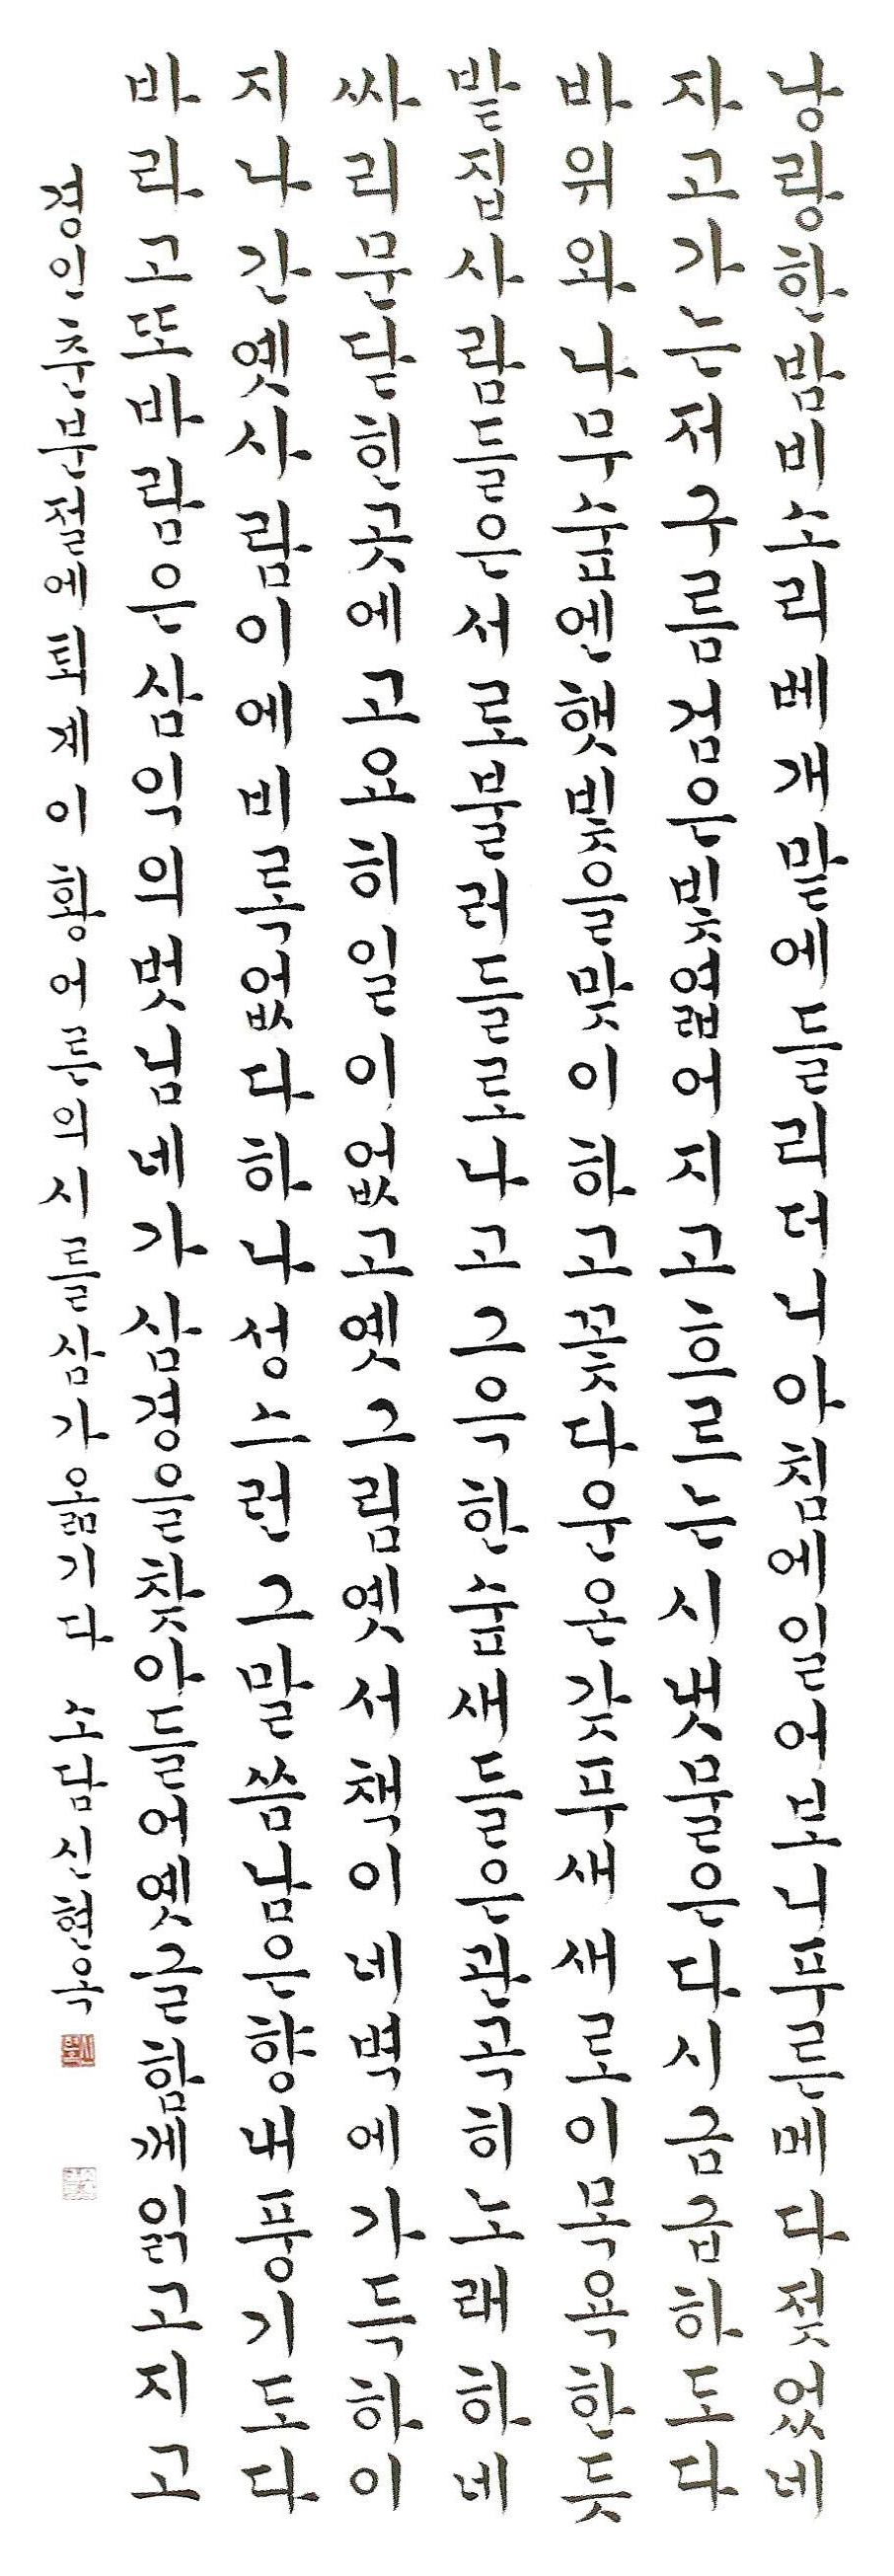 낭랑한밤비소리베개맡에들리더니아침에일어보니푸른메다젖었네
자고가는저구름검은빛엷어지고흐르는시냇물은다시금급하도다
바위와나무숲엔햇빛을맞이하고꽃다운온갖푸새새로이목욕한듯
밭집사람들은서로불러들로나고그윽한숲새들은관곡히노래하네
싸리문닫힌곳에고요히일이없고옛그림옛서책이네벽에가득하이
지나간옛사람이에비록없다하나성스런그말씀남은향내풍기도다
바라고또바람은삼익의벗님네가삼경을찾아들어옛글함께읽고지고
경인춘분절에퇴계이황어른의시를삼가옮기다 소담신현옥